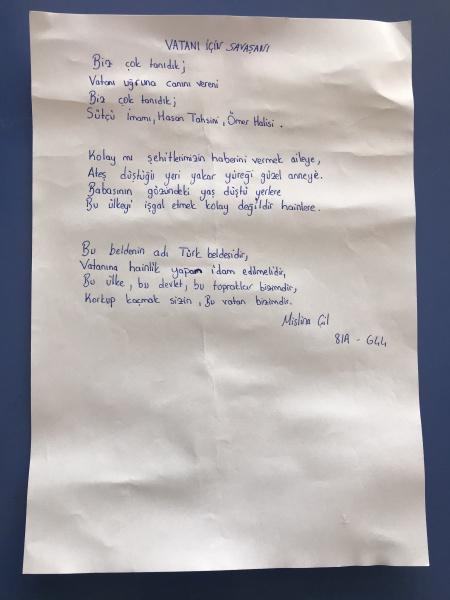 VATANI İÇİN SAVAŞANI
Biz çok tanıdık;
Vatanı uğruna canını vereni
Biz çok tanıdık;
Sütçü İmamı, Hasan Tahsini, Ömer Halisi.
Kolay mı şehitlerimizin haberini vermek aileye,
Ateş düştüğü yeri yakar yüreği güzel anneye.
Babasının gözündeki yaş düştü yerlere
Bu ülkeyi işgal etmek kolay değildir hainlere.
Bu beldenin adı Türk beldesidir,
Vatanına hainlik yapan idam edilmelidir,
Bu ülke, bu devlet, bu topraklar bizimdir,
Korkup kaçmak sizin, Bu vatan bizimdir.
Mislina Gül
8/A - 644